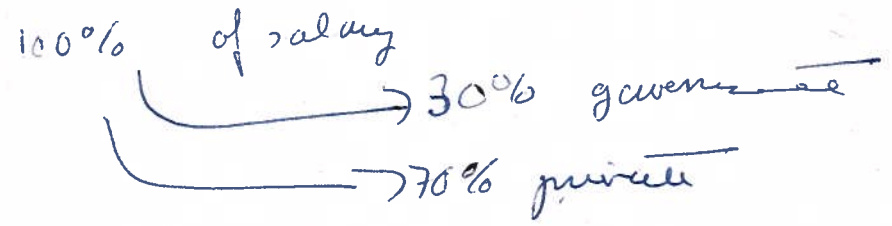 100% of salary
30% government
70% private